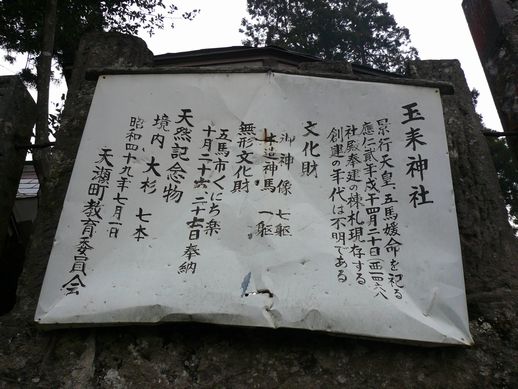 玉来神社
景行天皇、五馬媛命を祀る
應仁貳年戌子四月二十日(西一四六八
社殿奉建の棟札現存する
創建の年代は不明である
文化財
御神像 七躯
木造神馬 一躯
無形文化財
五馬市くにち楽
十月二十六、二十七日奉納
天然記念物
境内大杉 七本
昭和四十九年七月一日
天瀬町教育委員会